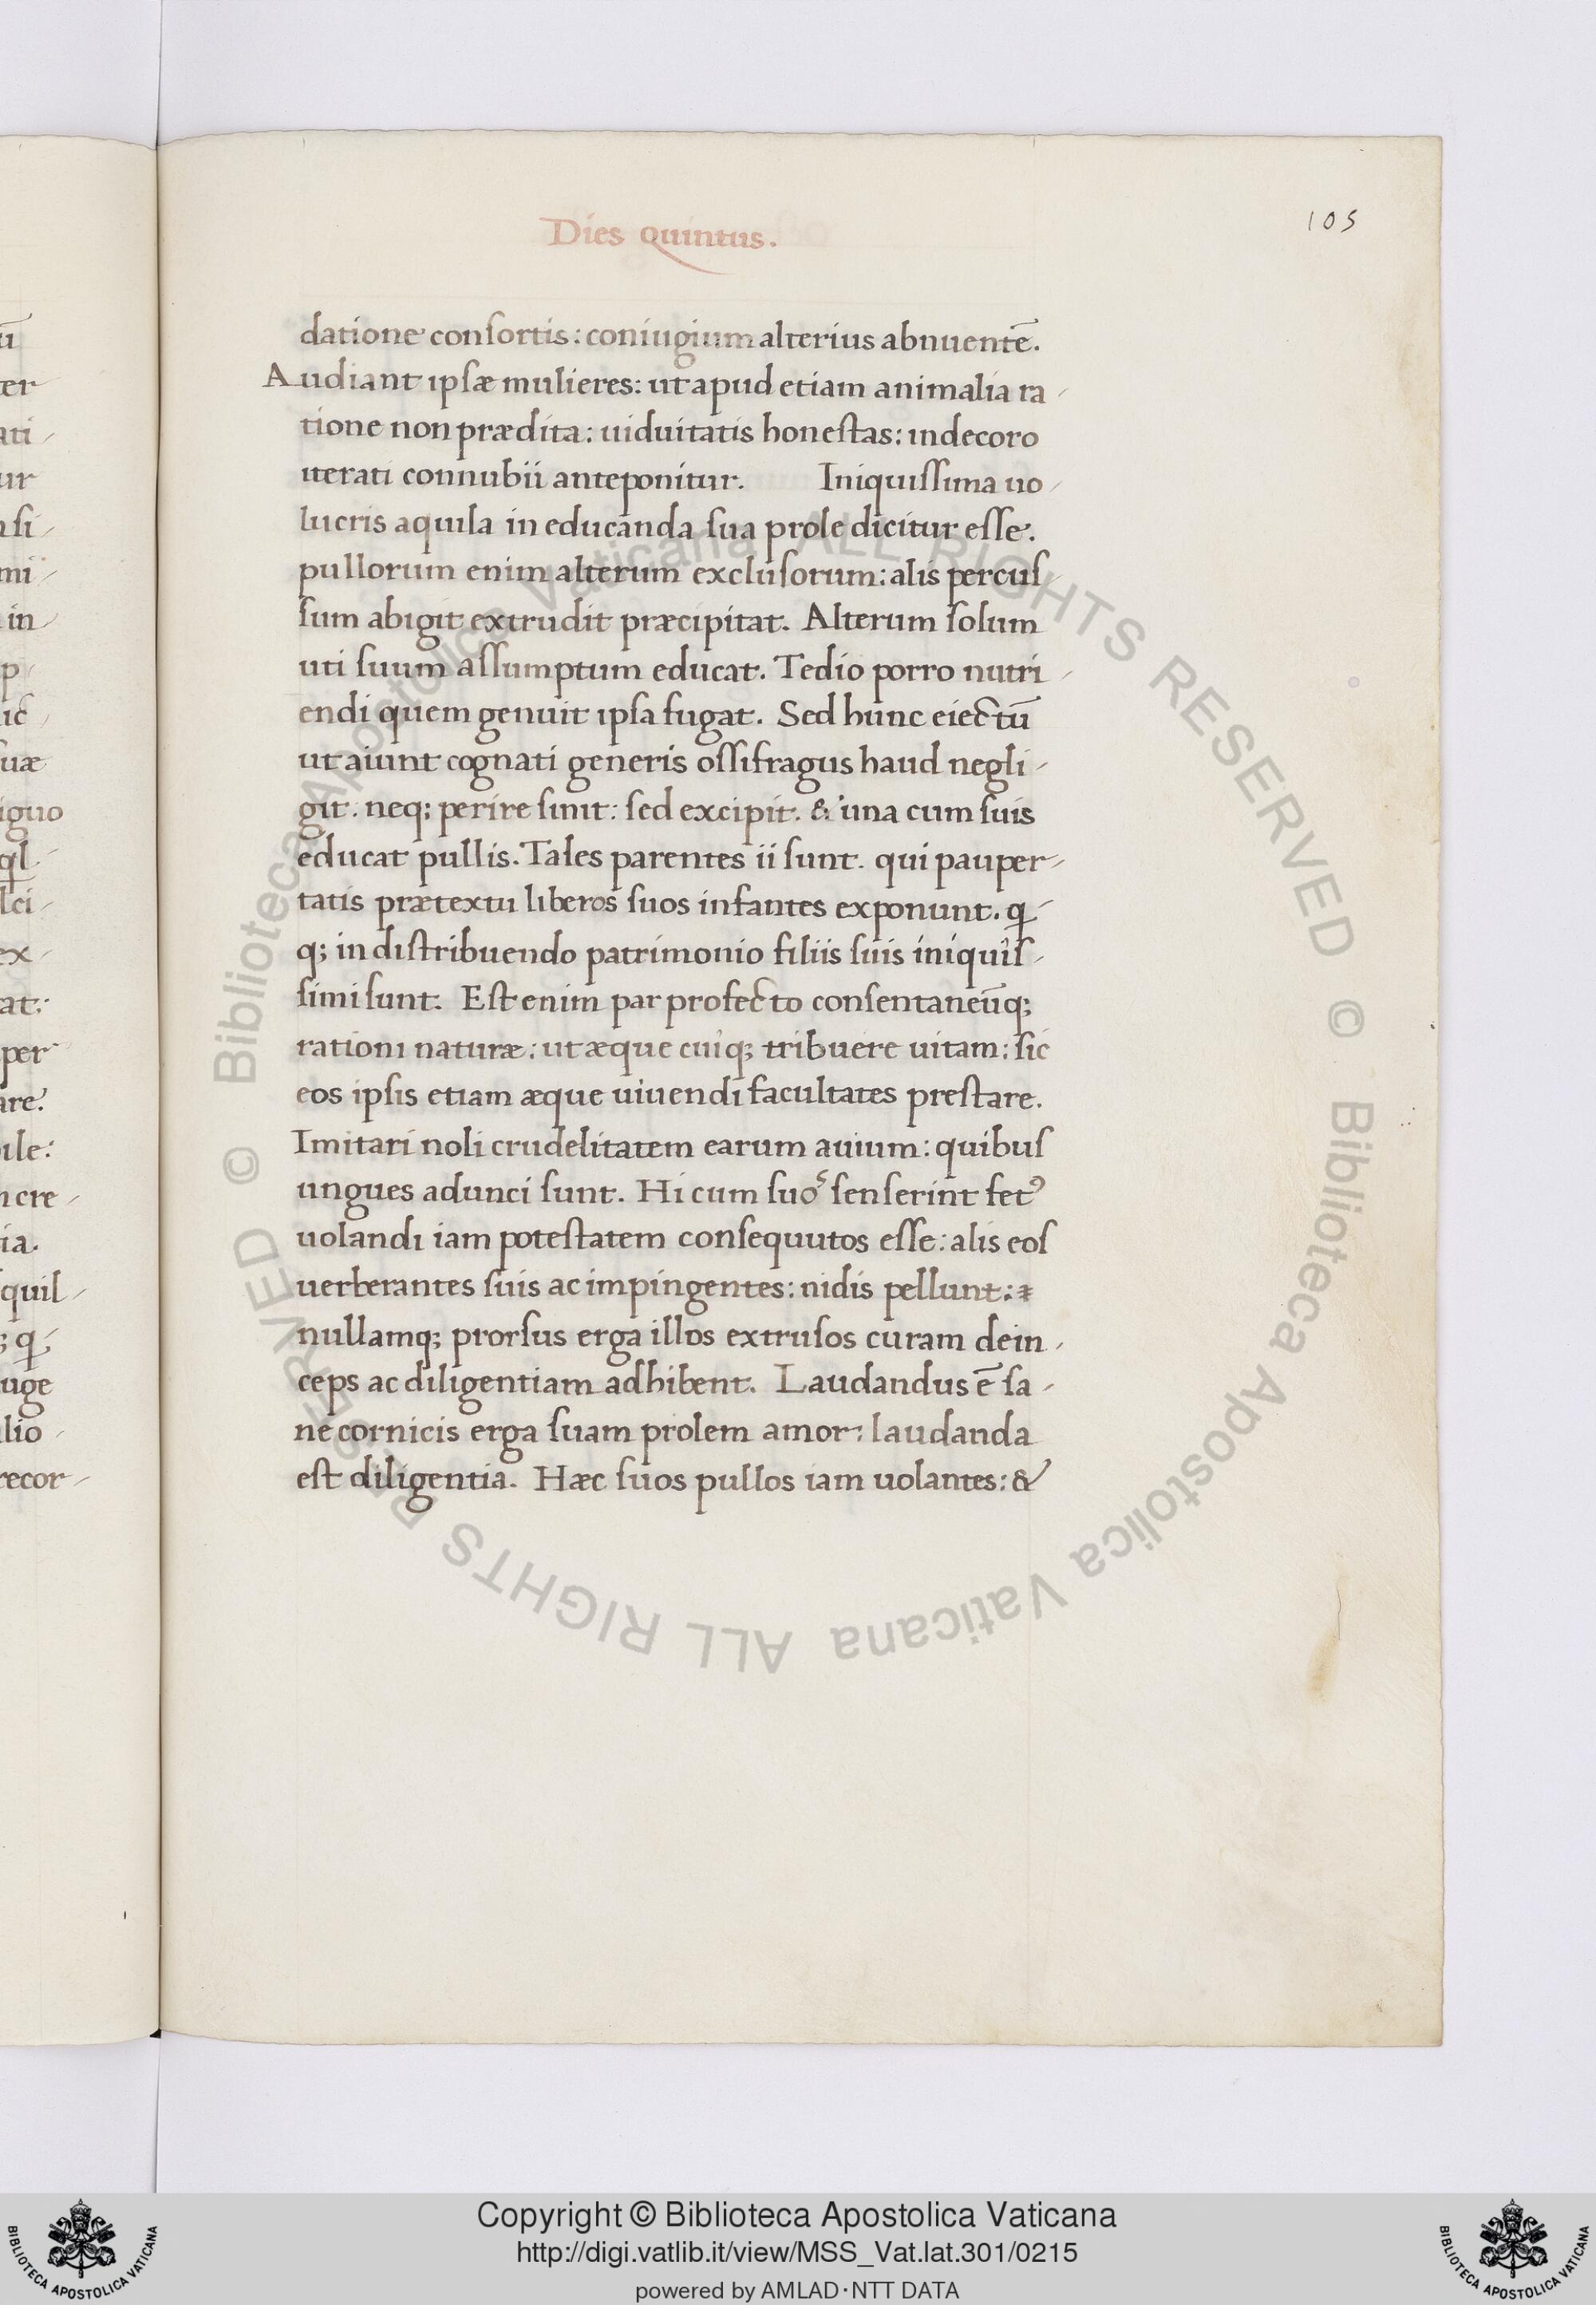 Dies Quintus.
105
datione consortis: coniugium alterius abnuentē.
Audiant ipsæ mulieres: ut apud etiam animalia ra-
tione non prædita: uiduitatis honestas: indecoro
iterati connubii anteponitur. Iniquissima uo-
lucris aquila in educanda sua prole dicitur esse.
pullorum enim alterum exclusorum: alis percus-
sum abigit extrudit præcipitat. Alterum solum
uti suum assumptum educat. Tedio porro nutri-
endi quem genuit ipsa fugat. Sed hunc eiectū
ut aiunt cognati generis ossifragus haud negli-
git. neq; perire sinit: sed excipit. & una cum suis
educat pullis. Tales parentes ii sunt. qui pauper-
tatis prætextu liberos suos infantes exponunt. q̄-
q; in distribuendo patrimonio filiis suis iniquis-
simi sunt. Est enim par profecto consentaneūq;
rationi naturæ: ut æque cuiq; tribuere uitam: sic
eos ipsis etiam æque uiuendi facultates prestare.
Imitari noli crudelitatem earum auium: quibus
ungues adunci sunt. Hi cum suoˢ senserint fetꝰ
uolandi iam potestatem consequutos esse: alis eos
uerberantes suis ac impingentes: nidis pellunt: ⁊
nullamq; prorsus erga illos extrusos curam dein-
ceps ac diligentiam adhibent. Laudandus ē sa-
ne cornicis erga suam prolem amor: laudanda
est diligentia. Hæc suos pullos iam uolantes: &
Copyright © Biblioteca Apostolica Vaticana
http://digi.vatlib.it/view/MSS_Vat.lat.301/0215
powered by AMLAD·NTT DATA
© Biblioteca Apostolica Vaticana ALL RIGHTS RESERVED
© Biblioteca Apostolica Vaticana ALL RIGHTS RESERVED
BIBLIOTECA APOSTOLICA VATICANA
BIBLIOTECA APOSTOLICA VATICANA